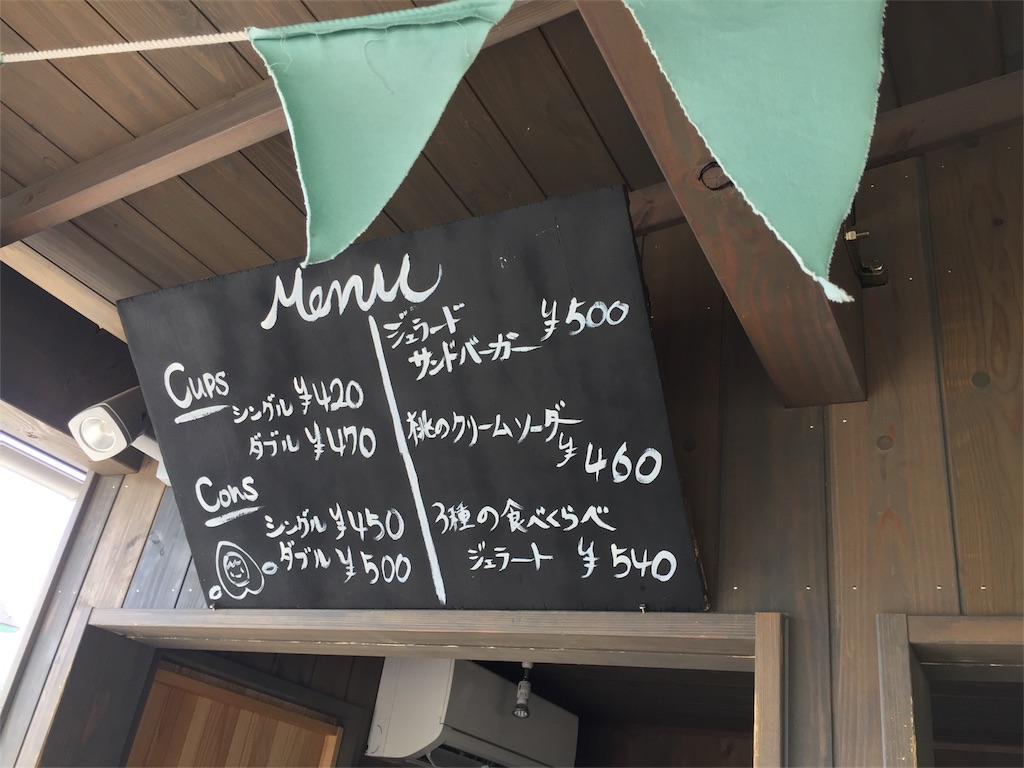 Menu
Cups
シングル ¥420
ダブル ¥470
Cons
シングル ¥450
ダブル ¥500
ジェラード ¥500
サンドバーガー
桃のクリームソーダー
¥460
3種の食べくらべ
ジェラート ¥540